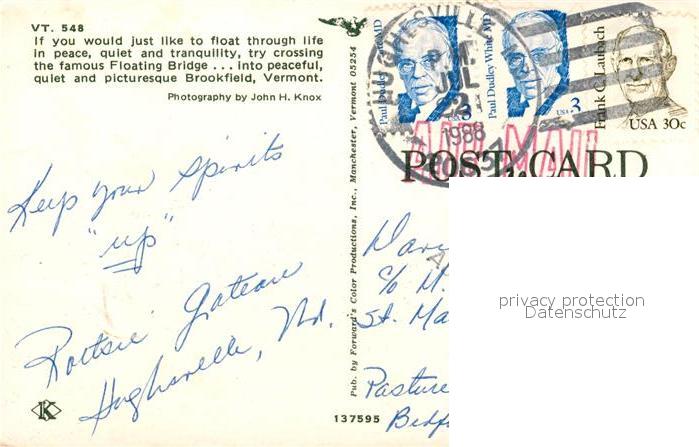 VT. 548
If you would just like to float through life
in peace, quiet and tranquility, try crossing
the famous Floating Bridge . . . into peaceful,
quiet and picturesque Brookfield, Vermont.
Photography by John H. Knox
Keep your spirits
"up"
Hughesville, Md.
K
Pub. by Forward's Color Productions, Inc., Manchester, Vermont 05254
137595
Paul Dudley White MD
USA 3
Paul Dudley White MD
USA 3
Frank C. Laubach
USA 30c
HUGHESVILLE
JUL
1988
AIR MAIL
POST CARD
c/o M.
St. Ma
Pasture
Bedf
privacy protection
Datenschutz